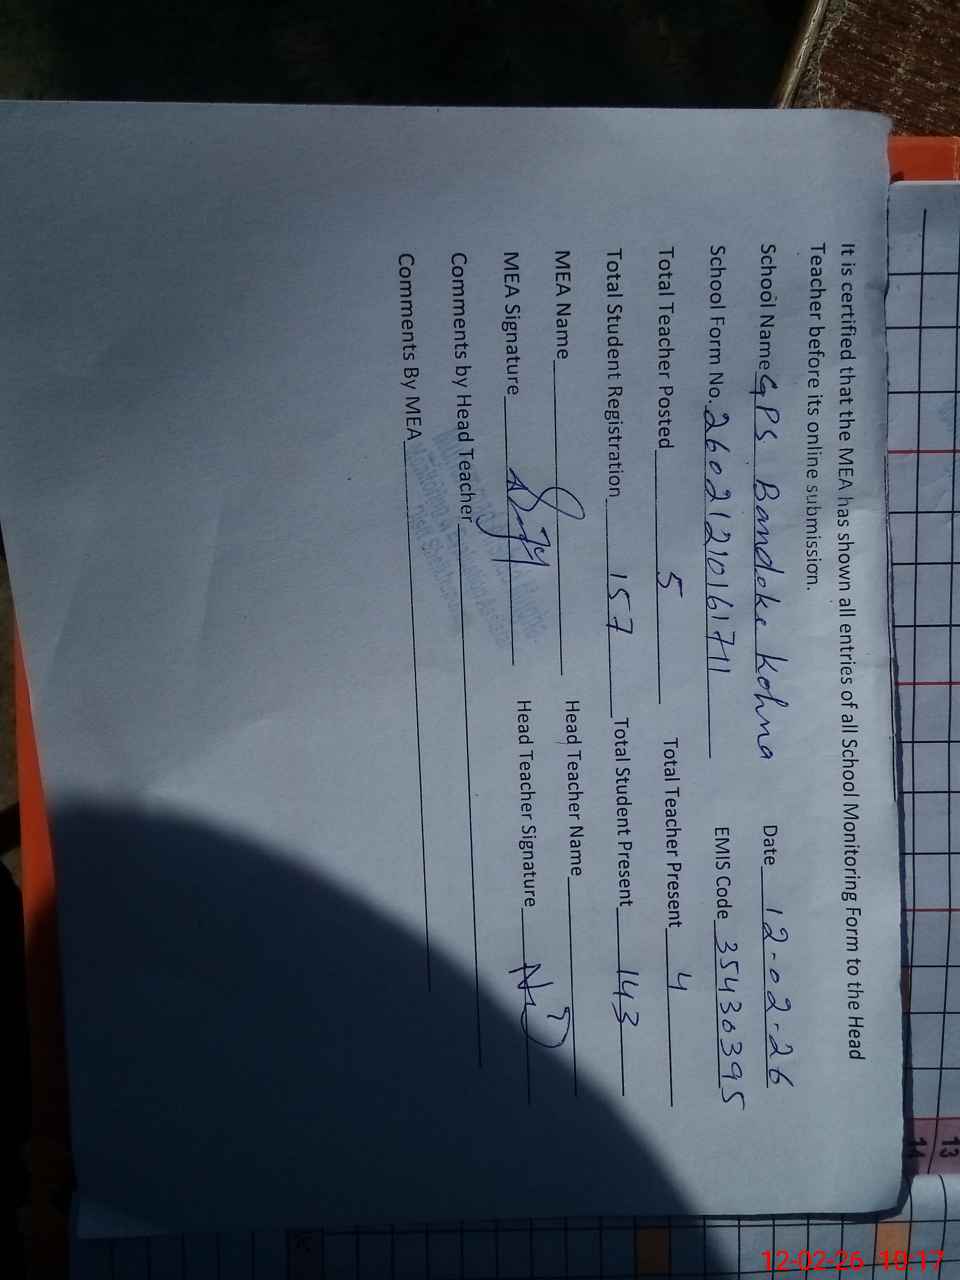 It is certified that the MEA has shown all entries of all School Monitoring Form to the Head
Teacher before its online submission.
School Name GPS Bandoke Kohna Date 12-02-26
School Form No. 26021210161711 EMIS Code 35430395
Total Teacher Posted 5 Total Teacher Present 4
Total Student Registration 157 Total Student Present 143
MEA Name Head Teacher Name
MEA Signature Head Teacher Signature
Comments by Head Teacher
Comments By MEA
13
14
12-02-26 10:17